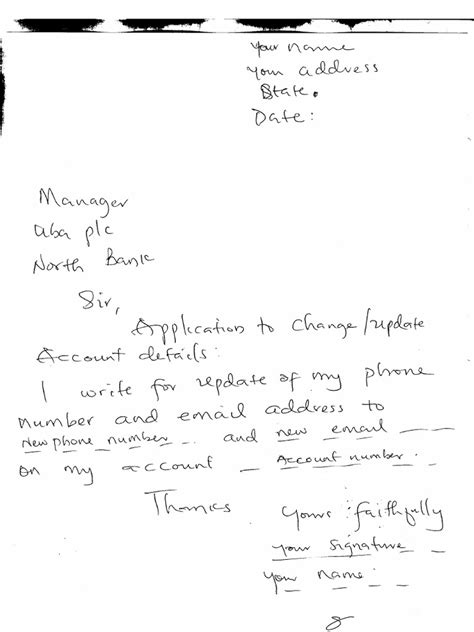 Your name
your address
State.
Date:
Manager
Uba plc
North Bank
Sir,
Application to change/update
Account details:
I write for update of my phone
number and email address to
New phone number -- and new email ---
on my account - Account number -
Thanks
Yours faithfully
your signature --
your name --